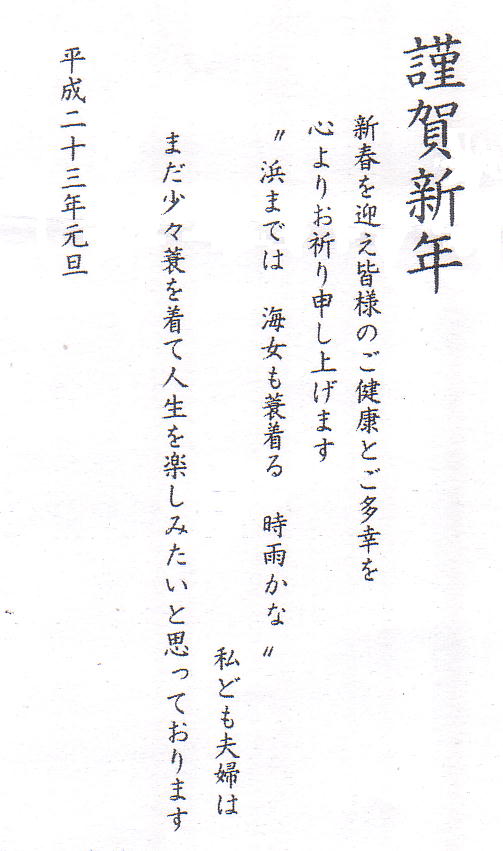 謹賀新年
新春を迎え皆様のご健康とご多幸を
心よりお祈り申し上げます
〃浜までは　海女も蓑着る　時雨かな〃
私ども夫婦は
まだ少々蓑を着て人生を楽しみたいと思っております
平成二十三年元旦